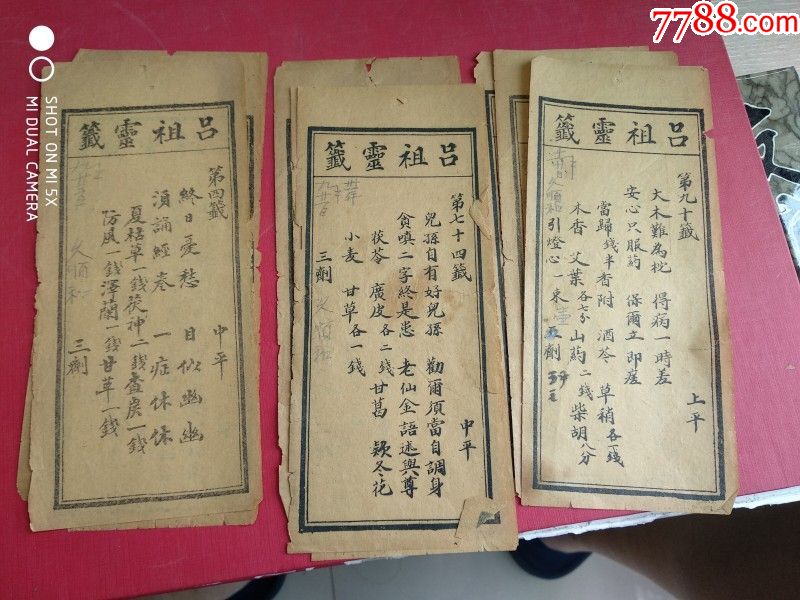 7788.com
SHOT ON MI 5X
MI DUAL CAMERA
呂祖靈籤
第四籤
中平
終日憂愁 目似幽幽
須誦經卷 一症休休
夏枯草一錢茯神二錢
防風一錢澤蘭一錢甘草一錢
三劑
久順和
呂祖靈籤
第七十四籤
中平
兒孫自有好兒孫 勸爾須當自調身
貪嗔二字終是患 老仙金語述與尊
茯苓 廣皮各二錢甘葛 款冬花
小麦 甘草各一錢
三劑
呂祖靈籤
第九十籤
上平
大木難為枕 得病一時差
安心只服药 保爾立即瘥
當歸錢半香附 酒苓 草稍各一錢
木香 艾葉各七分山药二錢柴胡八分
引燈心一束
劑
久順和